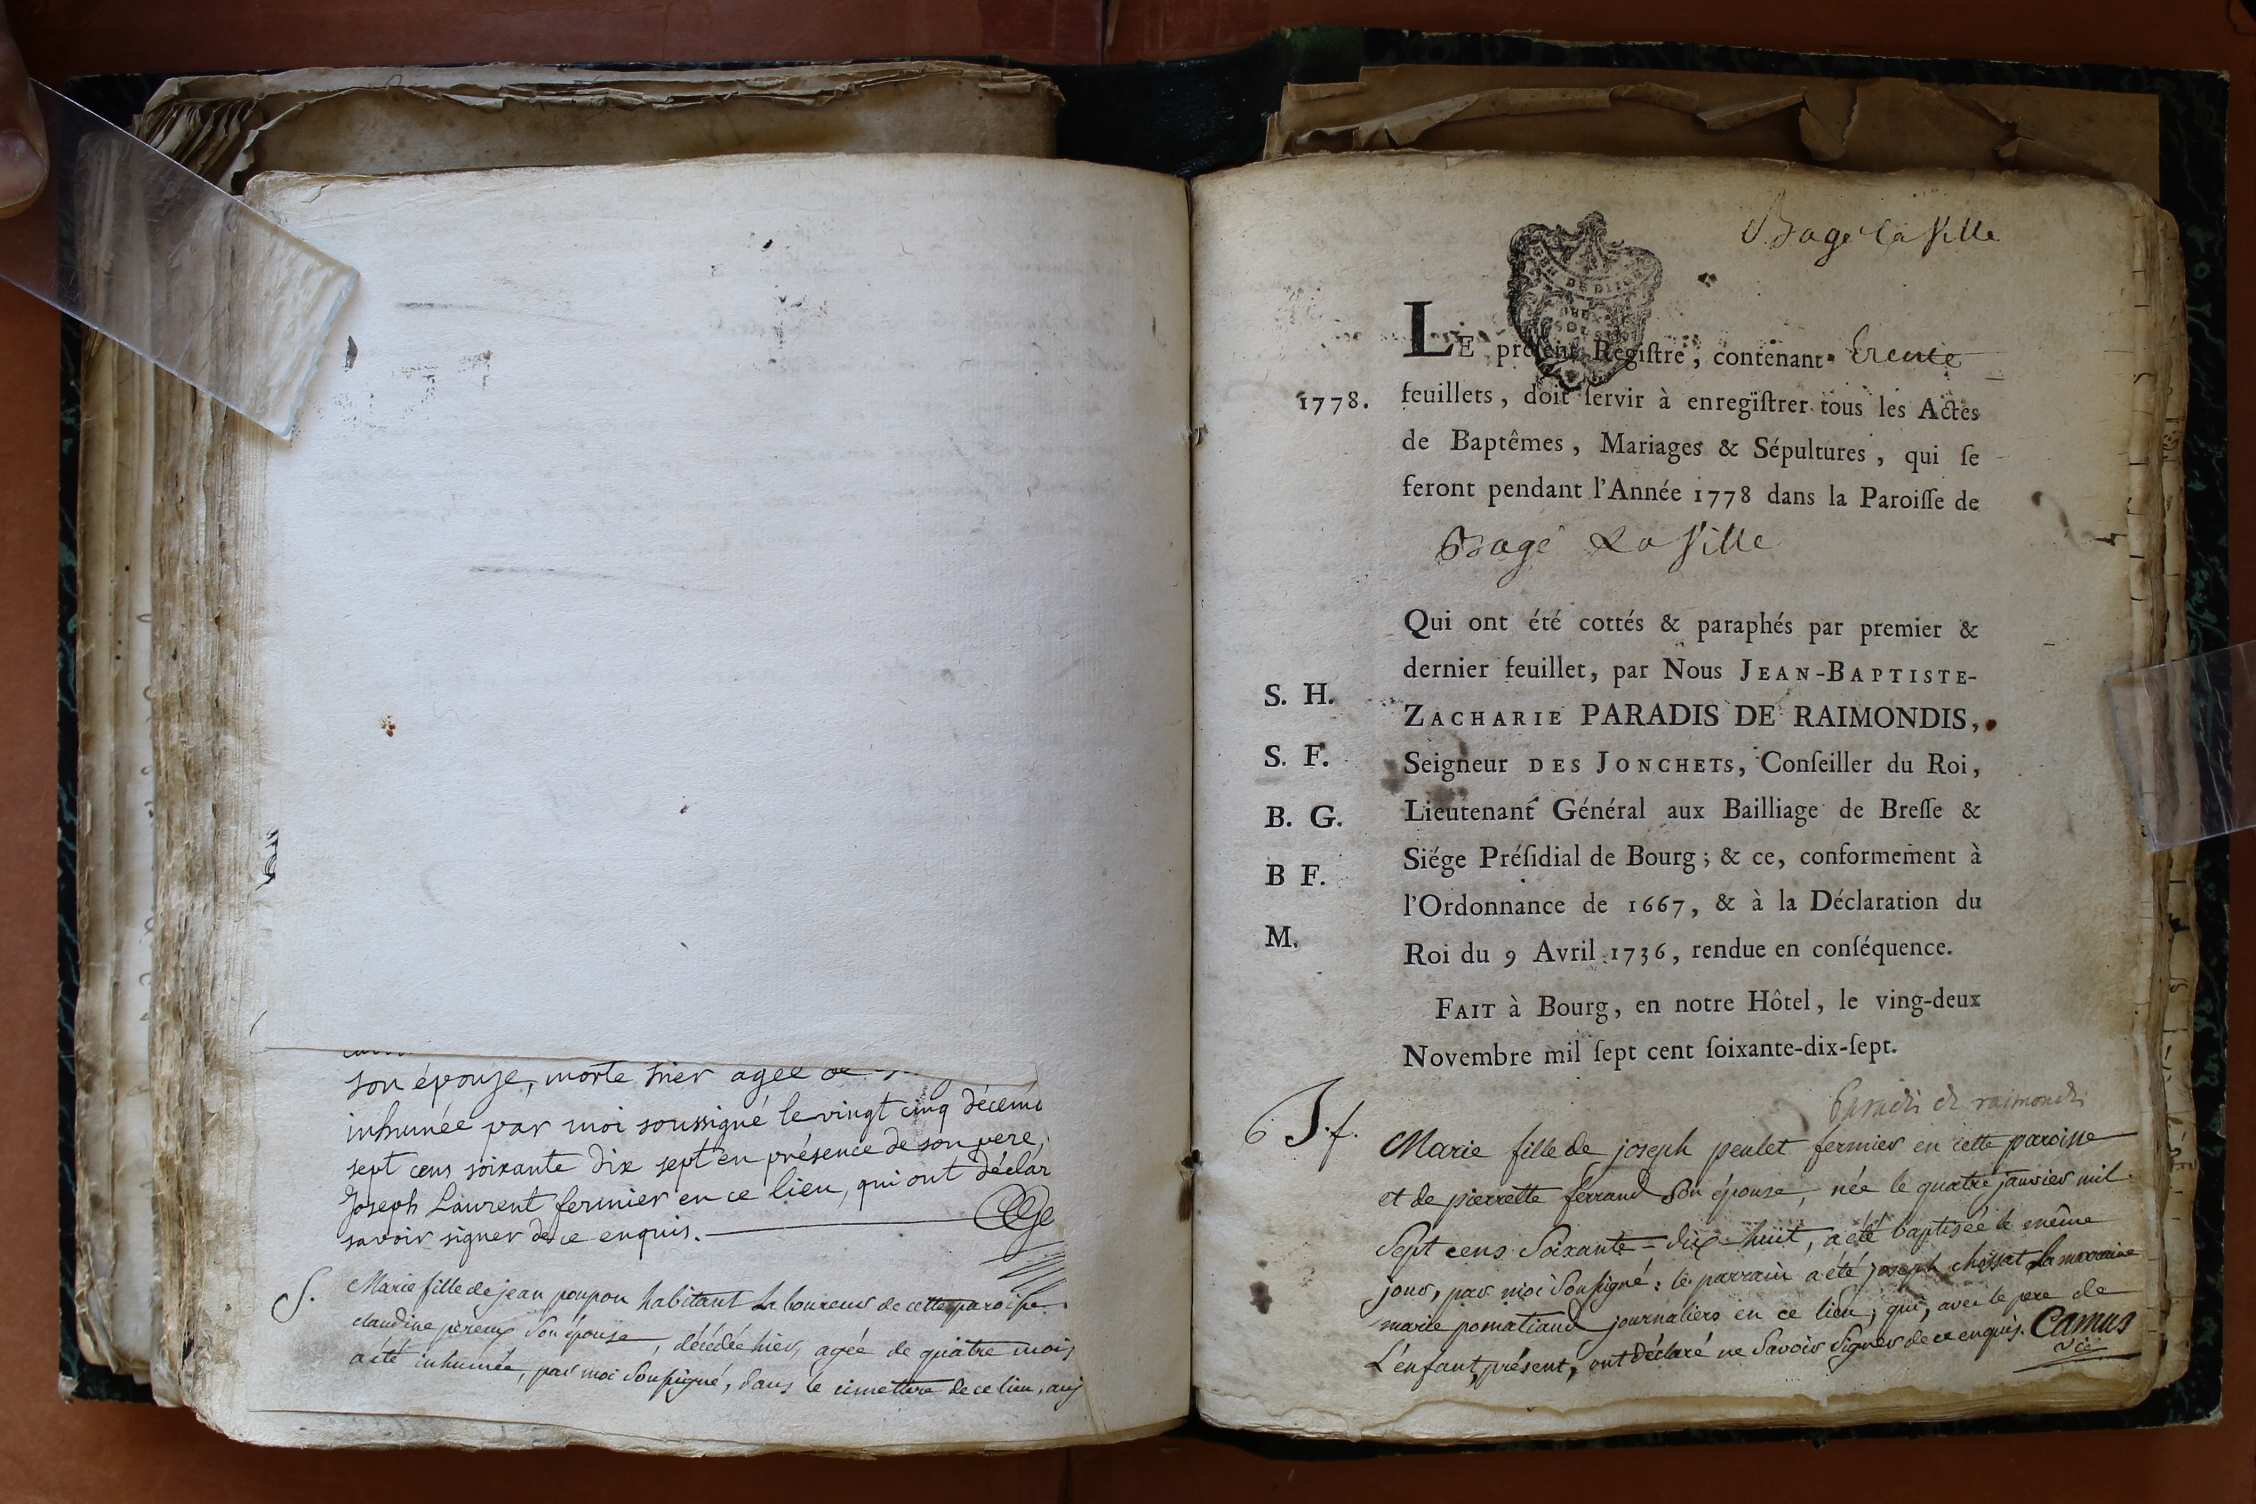 son épouze, morte hier agée de
inhumée par moi soussigné le vingt cinq décem
sept cens soixante dix sept en présence de son pere,
Joseph Laurent fermier en ce lieu, qui ont déclar
savoir signer de ce enquis.
S. Marie fille de jean poupon habitant Laboureur de cette paroisse
claudine perreux son épouse, décédée hier, agée de quatre mois
a été inhumée, par moi soussigné, dans le cimetiere de ce lieu, auj
Bagé la Ville
LE préſent Regiſtre, contenant trente
1778. feuillets, doit ſervir à enregiſtrer tous les Actes
de Baptêmes, Mariages & Sépultures, qui ſe
feront pendant l'Année 1778 dans la Paroiſſe de
Bagé La Ville
Qui ont été cottés & paraphés par premier &
dernier feuillet, par Nous JEAN-BAPTISTE-
S. H. ZACHARIE PARADIS DE RAIMONDIS,
S. F. Seigneur DES JONCHETS, Conſeiller du Roi,
B. G. Lieutenant Général aux Bailliage de Breſſe &
Siége Préſidial de Bourg ; & ce, conformement à
B F. l'Ordonnance de 1667, & à la Déclaration du
M. Roi du 9 Avril 1736, rendue en conſéquence.
FAIT à Bourg, en notre Hôtel, le ving-deux
Novembre mil ſept cent ſoixante-dix-ſept.
Paradis de raimondis
Marie fille de joseph peulet fermier en cette paroisse
et de pierrette ferrand son épouse, née le quatre janvier mil
Sept cens Soixante-dix-huit, a été baptisée le même
jour, par moi Soussigné : le parrain a été joseph chossat La marraine
marie pomatiaud journaliers en ce lieu ; qui, avec le pere de
L'enfant, présent, ont déclaré ne Savoir Signer de ce enquis. Camus
vic